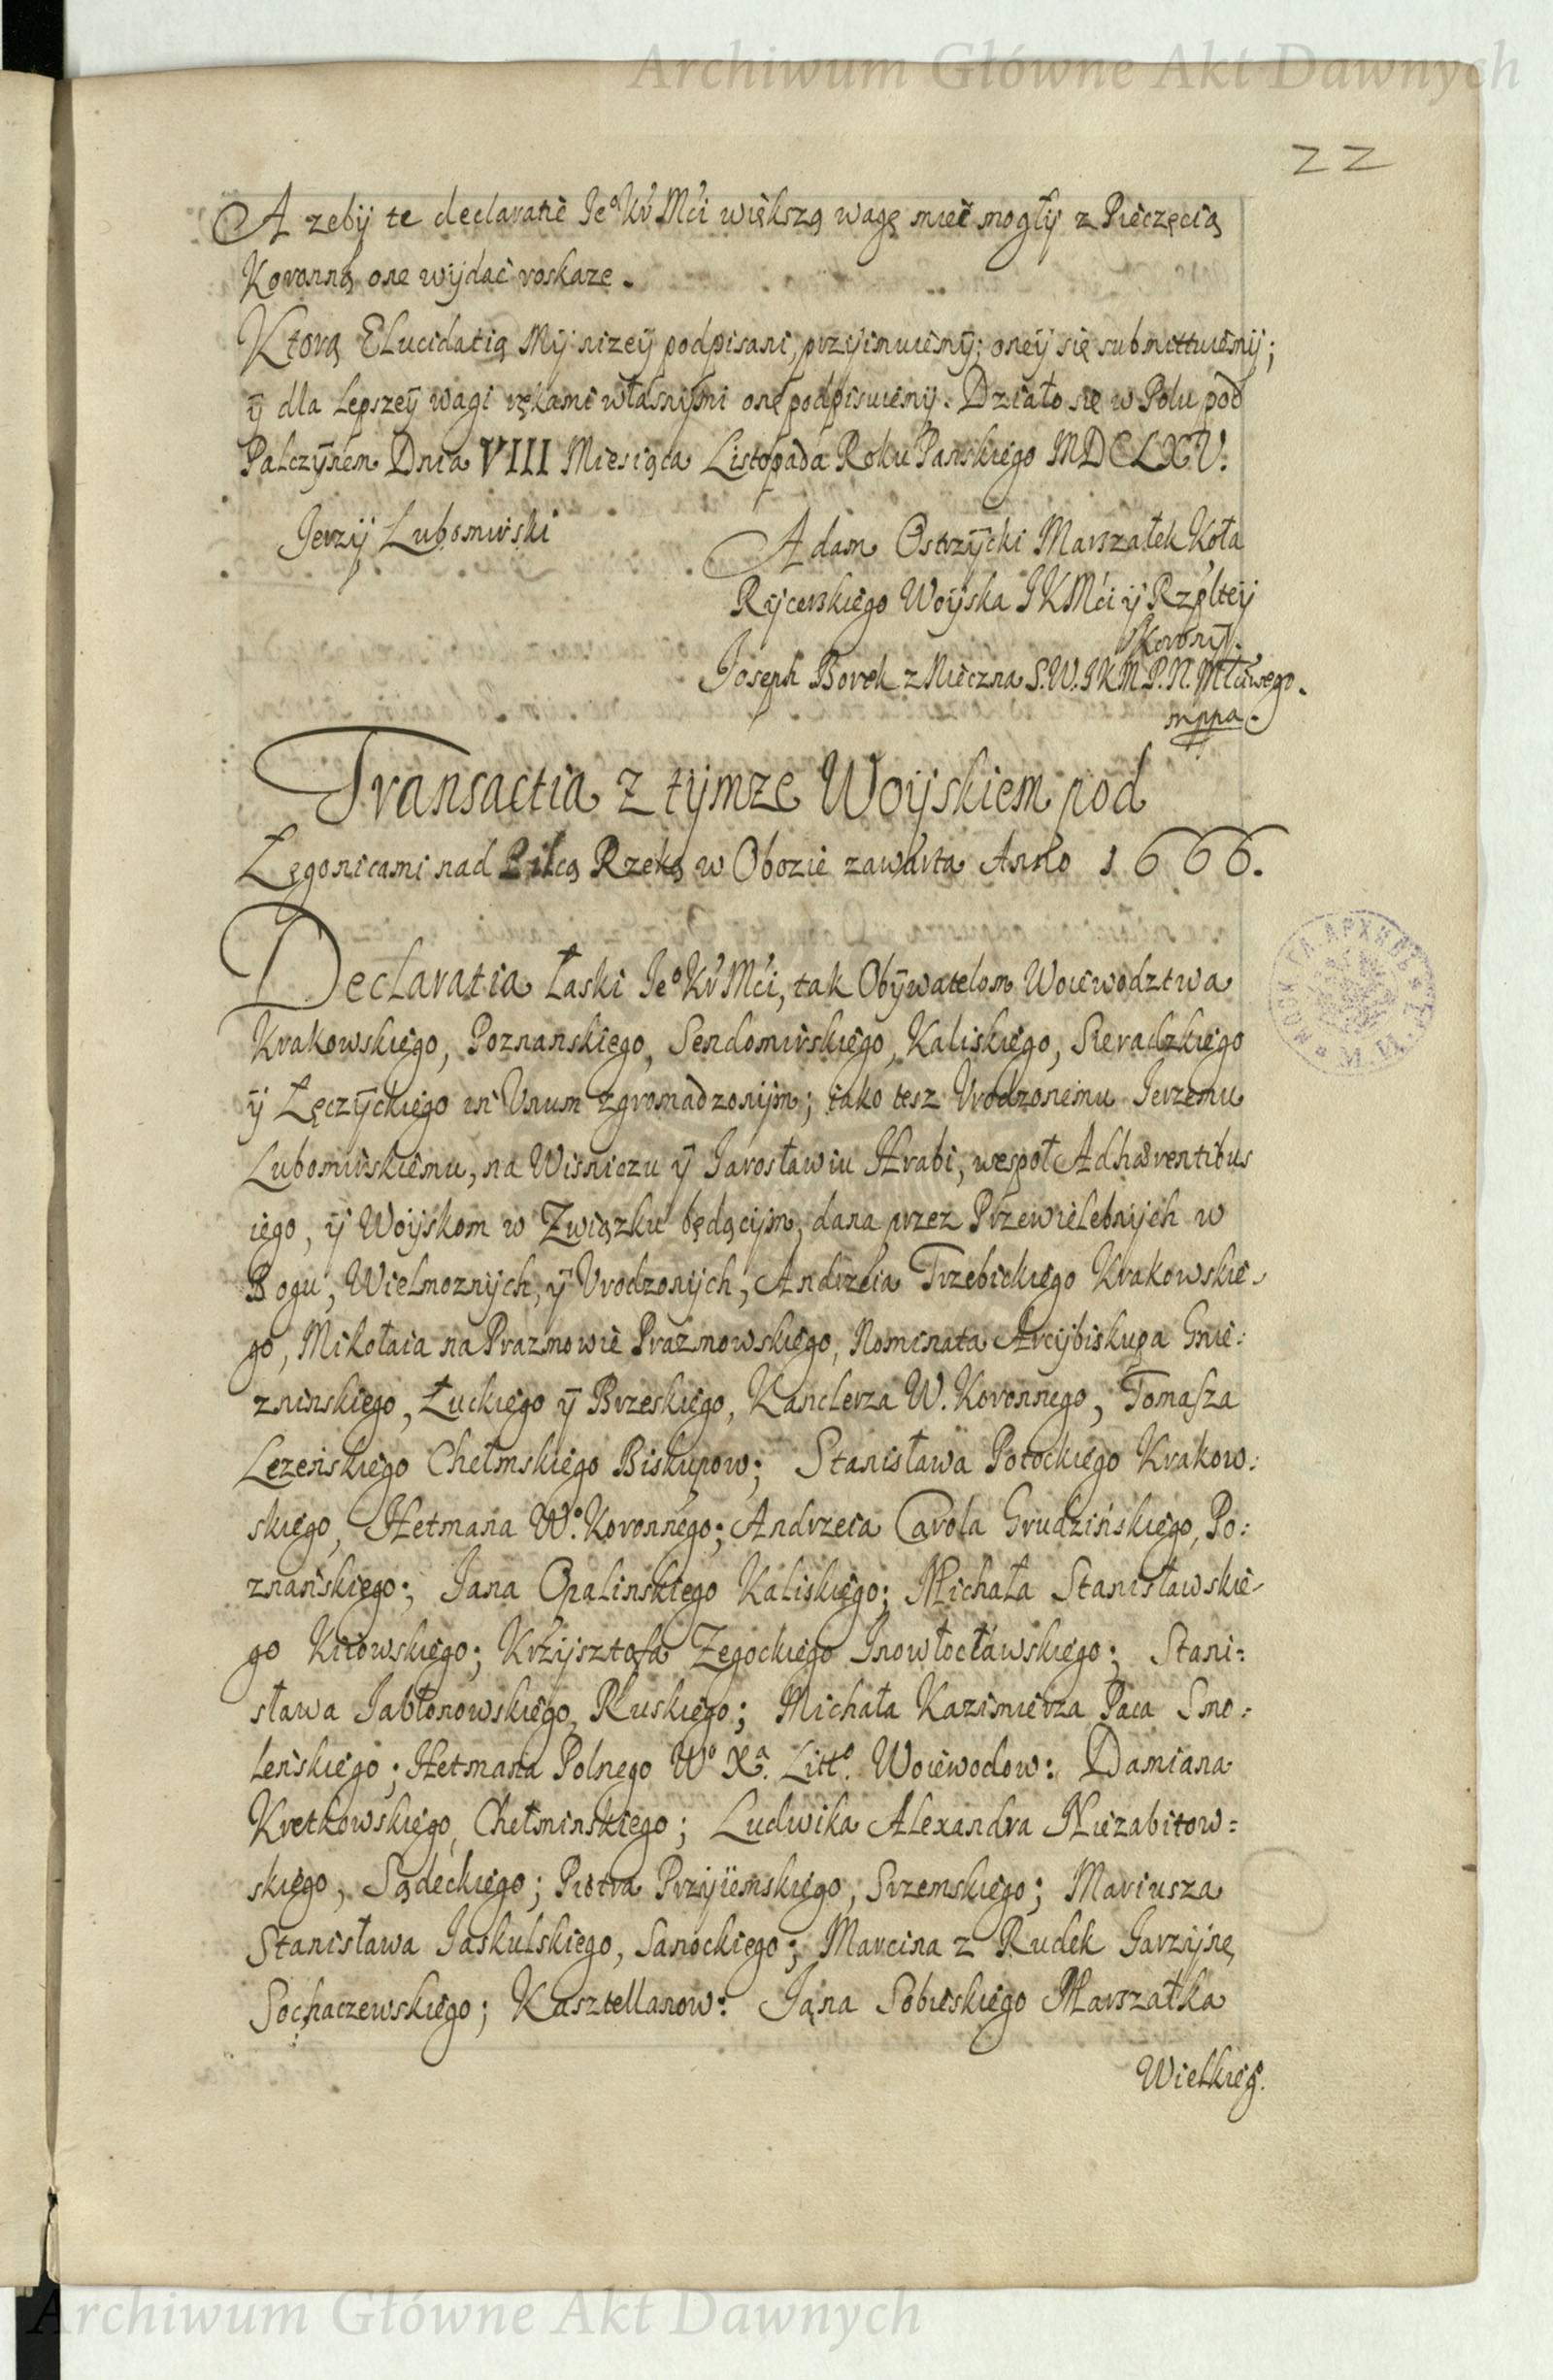 Archiwum Główne Akt Dawnych
22
A zebÿ te declaratie Jeº Kr̃ Mći większą wagę mieć mogłÿ z Pieczęcią
Koronną one wÿdać roskaze.
Ktorą Elucidatią Mÿ nizeÿ podpisani, przÿimuiemÿ; oneÿ się submittuiemÿ;
ÿ dla lepszeÿ wagi rękami własnÿmi onę podpisuiemÿ. Działo się w Polu pod
Palczÿnem Dnia VIII Miesiąca Listopada Roku Panskiego MDCLXV.
Jerzÿ Lubomirski
Adam Ostrzÿcki Marszałek Koła
Rÿcerskiego Woÿska JKMći ÿ Rzpłteÿ
Koronÿ.
Joseph Borek z Nieczna S.W.JKM P.N.
mppa.
Transactia z tÿmze Woÿskiem pod
Łęgonicami nad Pilcą Rzeką w Obozie zawarta Anno 1666.
Declaratia Łaski Jeº Kr̃ Mći, tak Obÿwatelom Woiewodztwa
Krakowskiego, Poznanskiego, Sendomirskiego, Kaliskiego, Sieradzkiego
ÿ Łęczÿckiego in Unum zgromadzonÿm; iako tesz Vrodzonemu Jerzemu
Lubomirskiemu, na Wisniczu ÿ Jarosławiu Hrabi, wespoł Adhærentibus
iego, ÿ Woÿskom w Związku będącÿm, dana przez Przewielebnÿch w
Bogu, Wielmoznÿch, ÿ Vrodzonÿch, Andrzeia Trzebickiego Krakowskie-
go, Mikołaia na Prazmowie Prazmowskiego, Nominata Arcÿbiskupa Gnie:
zninskiego, Łuckiego ÿ Brzeskiego, Kanclerza W. Koronnego, Tomasza
Lezeńskiego Chełmskiego Biskupow; Stanisława Potockiego Krakow:
skiego, Hetmana Wº. Koronnego; Andrzeia Carola Grudzińskiego, Po:
znańskiego; Jana Opalinskiego Kaliskiego; Michała Stanisławskie-
go Kiiowskiego; Krzÿsztofa Zegockiego Inowłocławskiego; Stani:
sława Jabłonowskiego, Ruskiego; Michała Kazimierza Paca Smo:
leńskiego; Hetmana Polnego Wº Xª. Littº. Woiewodow: Damiana
Kretkowskiego, Chełminskiego; Ludwika Alexandra Niezabitow=
skiego, Sądeckiego; Piotra Przÿiemskiego, Srzemskiego; Mariusza
Stanisława Jaskulskiego, Sanockiego; Marcina z Rudek Jarzÿnę
Sochaczewskiego; Kasztellanow: Jana Sobieskiego Marszałka
Wielkiegº.
Archiwum Główne Akt Dawnych